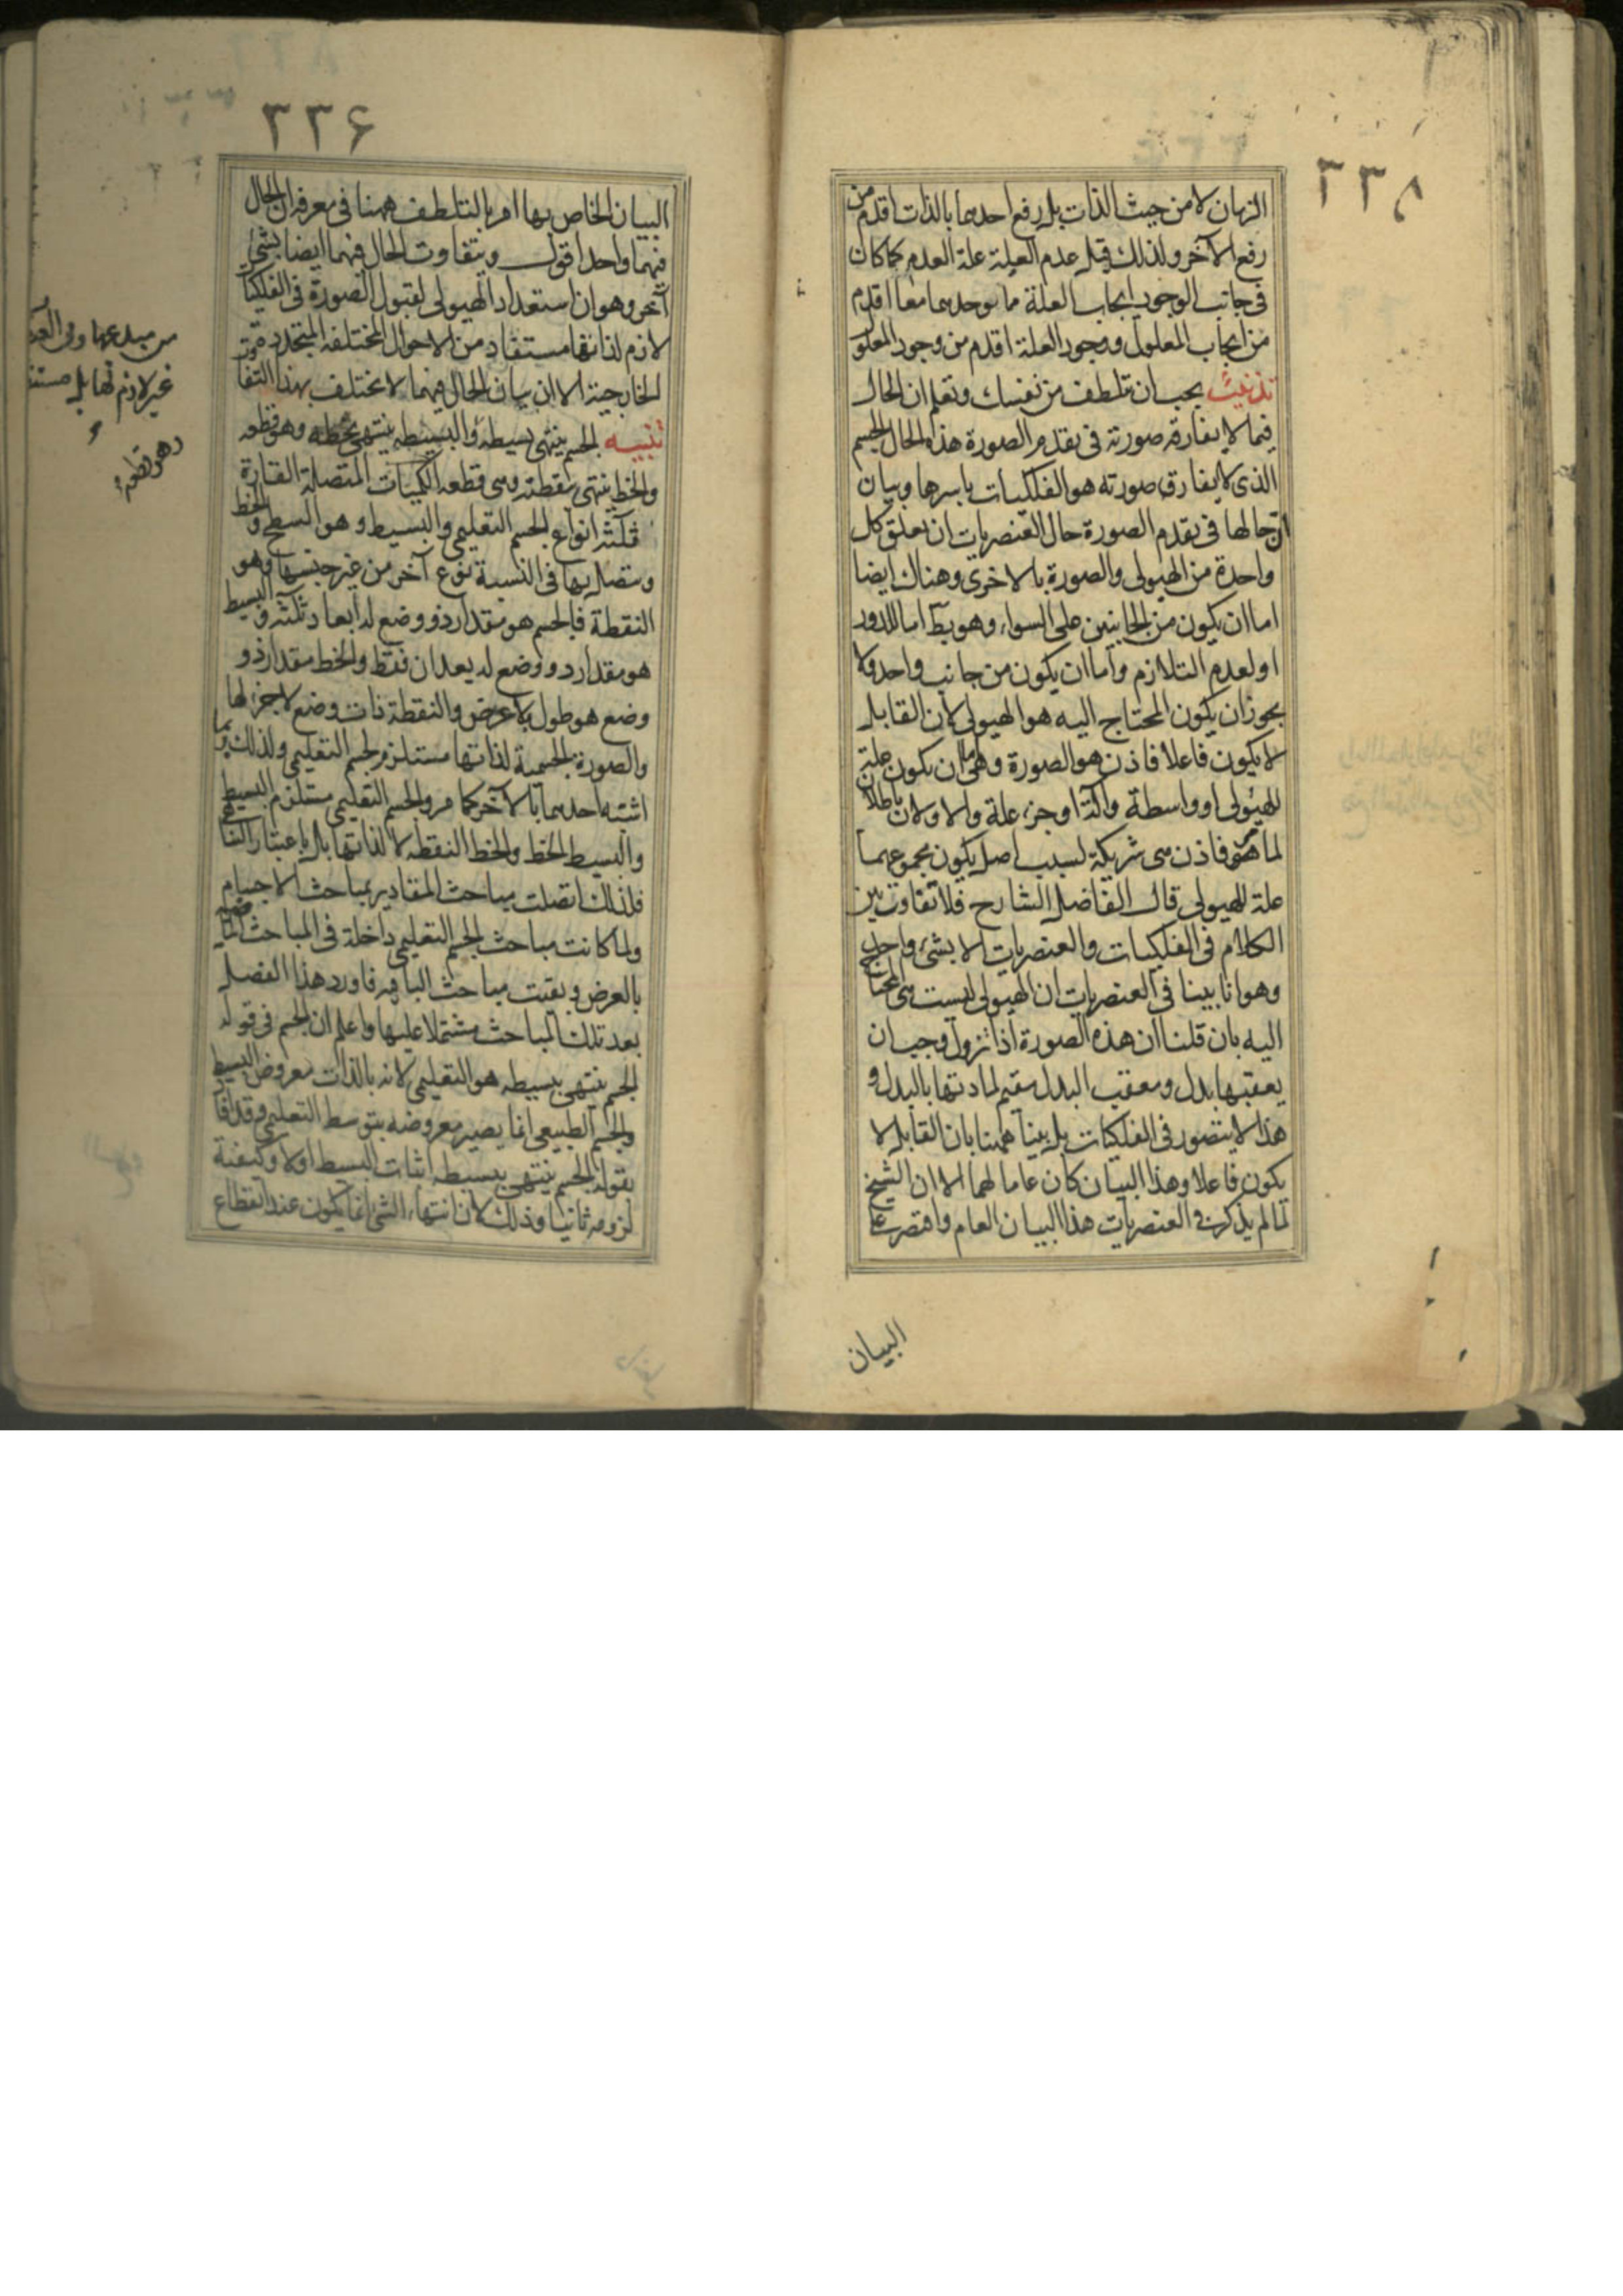 ٣٣٨
الزمان لا من حيث الذات بل رفع احدهما بالذات اقدم من
رفع الآخر ولذلك قيل عدم العلة علة العدم كما كان
فى جانب الوجود ايجاب العلة معا اقدم
من ايجاب المعلول ووجود العلة اقدم من وجود المعلو
تذنيب يجب ان تلطف من نفسك وتعلم ان الحال
فيما لا يفارقه صورته فى تقدم الصورة هذه الحال الجسم
الذى لا يفارق صورته هو الفلكيات باسرها وبيان
ان حالها فى تقدم الصورة حال العنصريات ان تعلق كل
واحدة من الهيولى والصورة بالاخرى وهناك ايضا
اما ان يكون من الجانبين على السواء وهو بط اما للدور
او لعدم التلازم واما ان يكون من جانب واحد ولا
يجوز ان يكون المحتاج اليه هو الهيولى لان القابل
لا يكون فاعلا فاذن هو الصورة وهى اما ان يكون علة
للهيولى او واسطة وآلة او جزء علة والاولان باطلان
لما مر فاذن هى شريكة لسبب اصل يكون مجموعهما
علة للهيولى قال الفاضل الشارح فلا تفاوت بين
الكلام فى الفلكيات والعنصريات الا بشىء واحد
وهو انا بينا فى العنصريات ان الهيولى ليست هى المحتاج
اليه بان قلنا ان هذه الصورة اذا تزول وجب ان
يعقبها بدل ومعقب البدل مقيم لمادتها بالبدل و
هذا لا يتصور فى الفلكيات بل بينا ههنا بان القابل لا
يكون فاعلا وهذا البيان كان عاما لهما الا ان الشيخ
لما لم يذكر فى العنصريات هذا البيان العام واقتصر على
البيان
٣٣۶
البيان الخاص بها امر بالتلطف ههنا فى معرفة ان الحال
فيهما واحد اقول ويتفاوت الحال فيهما ايضا بشىء
آخر وهو ان استعداد الهيولى لقبول الصورة فى الفلكيا
لازم لذاتها مستفاد من الاحوال المختلفة المتجددة
الخارجية الا ان بيان الحال فيهما لا يختلف بهذا التفا
تنبيه الجسم ينتهى ببسيطه والبسيط ينتهى بخطه وهو قطعه
والخط ينتهى بنقطته وهى قطعه الكميات المتصلة القارة
ثلثة انواع الجسم التعليمى والبسيط وهو السطح والخط
ويتصل بها فى النسبة نوع آخر من غير جنسها وهو
النقطة فالجسم هو مقدار ذو وضع له ابعاد ثلثة والبسيط
هو مقدار ذو وضع له بعدان فقط والخط مقدار ذو
وضع هو طول بلا عرض والنقطة ذات وضع لا جزء لها
والصورة الجسمية لذاتها مستلزم لجسم التعليمى ولذلك ربما
اشتبه احدهما بالآخر كما مر والجسم التعليمى مستلزم البسيط
والبسيط الخط والخط النقطة لا لذاتها بل باعتبار التنا
فلذلك اتصلت مباحث المقادير بمباحث الاجسام
ولما كانت مباحث الجسم التعليمى داخلة فى المباحث الماضية
بالعرض وبقيت مباحث الباقيه فاورد هذا الفصل
بعد تلك المباحث مشتملا عليها واعلم ان الجسم فى قوله
الجسم ينتهى ببسيطه هو التعليمى لانه بالذات معروض البسيط
والجسم الطبيعى انما يصير معروضه بتوسط التعليمى وقد افاد
بقوله الجسم ينتهى ببسيطه اثبات البسيط اولا وكيفية
لزومه ثانيا وذلك لان انتهاء الشىء انما يكون عند انقطاع
من مبدعها وفى
غير لازم لها بل
وهو قطعه